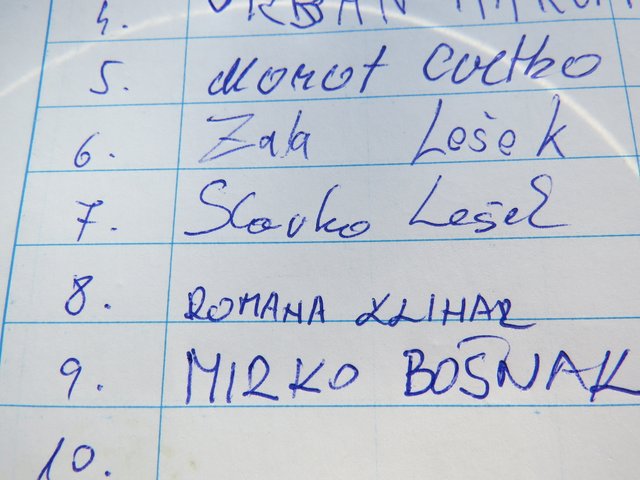 4. URBAN
5. Morot Cvetko
6. Zala Lešek
7. Slavko Lešek
8. ROMANA KLIHAR
9. MIRKO BOŠNAK
10.